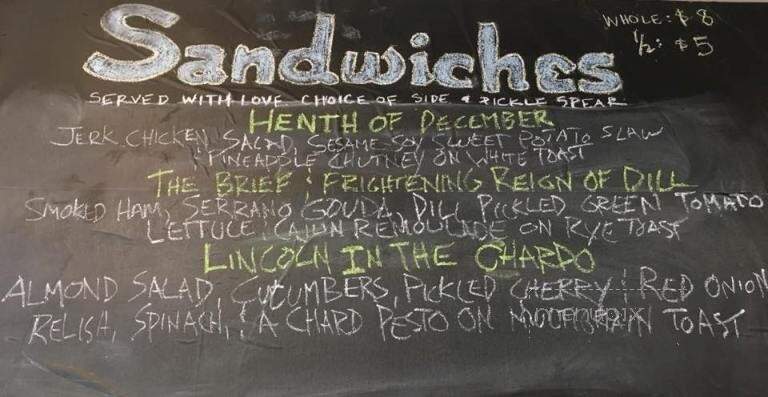 Sandwiches
WHOLE: $8
1/2: $5
SERVED WITH LOVE CHOICE OF SIDE & PICKLE SPEAR
HENTH OF DECEMBER
JERK CHICKEN SALAD, SESAME SOY SWEET POTATO SLAW
& PINEAPPLE CHUTNEY ON WHITE TOAST
THE BRIEF & FRIGHTENING REIGN OF DILL
SMOKED HAM, SERRANO GOUDA, DILL PICKLED GREEN TOMATO
LETTUCE & CAJUN REMOULADE ON RYE TOAST
LINCOLN IN THE CHARDO
ALMOND SALAD, CUCUMBERS, PICKLED CHERRY & RED ONION
RELISH, SPINACH, & A CHARD PESTO ON TOAST